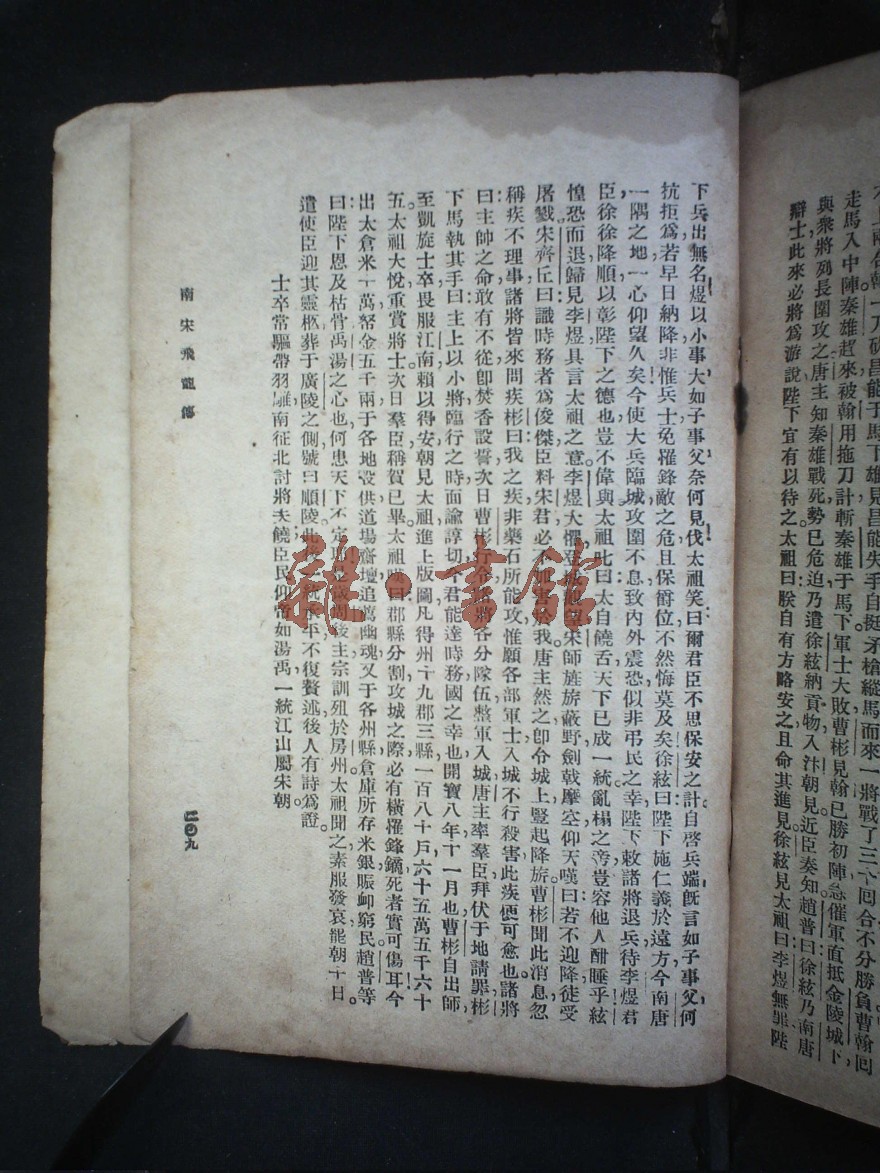 走馬入中陣秦雄趕來被翰用拖刀計斬秦雄于馬下軍士大敗曹彬見翰已勝初陣急催軍直抵金陵城下
與衆將列長圍攻之唐主知秦雄戰死勢已危迫乃遣徐絃納貢物入汴朝見近臣奏知趙普曰徐絃乃南唐
辯士此來必將爲游說陛下宜有以待之太祖曰朕自有方略安之且命其進見徐絃見太祖曰李煜無罪陛
下兵出無名煜以小事大如子事父奈何見伐太祖笑曰爾君臣不思保安之計自啓兵端旣言如子事父何
抗拒爲若早日納降非惟兵士免罹鋒敵之危且保爵位不然悔莫及矣徐絃曰陛下施仁義於遠方今南唐
一隅之地一心仰望久矣今使大兵臨城攻圍不息致內外震恐似非弔民之幸陛下敕諸將退兵待李煜君
臣徐徐降順以彰陛下之德也豈不偉與太祖叱曰太自饒舌天下已成一統亂榻之旁豈容他人酣睡乎絃
惶恐而退歸見李煜具言太祖之意李煜大懼登城宋師旌旂蔽野劍戟摩空仰天嘆曰若不迎降徒受
屠戮宋齊丘曰識時務者爲俊傑臣料宋君必不加害於我唐主然之卽令城上豎起降旂曹彬聞此消息忽
稱疾不理事諸將皆來問疾彬曰我之疾非藥石所能攻惟願各部軍士入城不行殺害此疾便可愈也諸將
曰主帥之命敢有不從卽焚香設誓次日曹彬行令諸將各分隊伍整軍入城唐主率羣臣拜伏于地請罪彬
下馬執其手曰主上以小將臨行之時面諭諄切今君能達時務國之幸也開寶八年十一月也曹彬自出師
至凱旋士卒畏服江南賴以得安朝見太祖進上版圖凡得州十九郡三縣一百八十戶六十五萬五千六十
五太祖大悅重賞將士次日羣臣稱賀已畢太祖嘆曰郡縣分割攻城之際必有橫罹鋒鏑死者實可傷耳今
出太倉米十萬帑金五千兩于各地設供道場齋壇追薦幽魂又于各州縣倉庫所存米銀賑卹窮民趙普等
曰陛下恩及枯骨禹湯之心也何患天下不定後主宗訓殂於房州太祖聞之素服發哀能朝十日
遣使臣迎其靈柩葬于廣陵之側號曰順陵此後一統不復贅述後人有詩爲證
士卒常驅帶羽雕南征北討將夫饒臣民仰帝如湯禹一統江山屬宋朝
南宋飛龍傳
二〇九
雜·書館